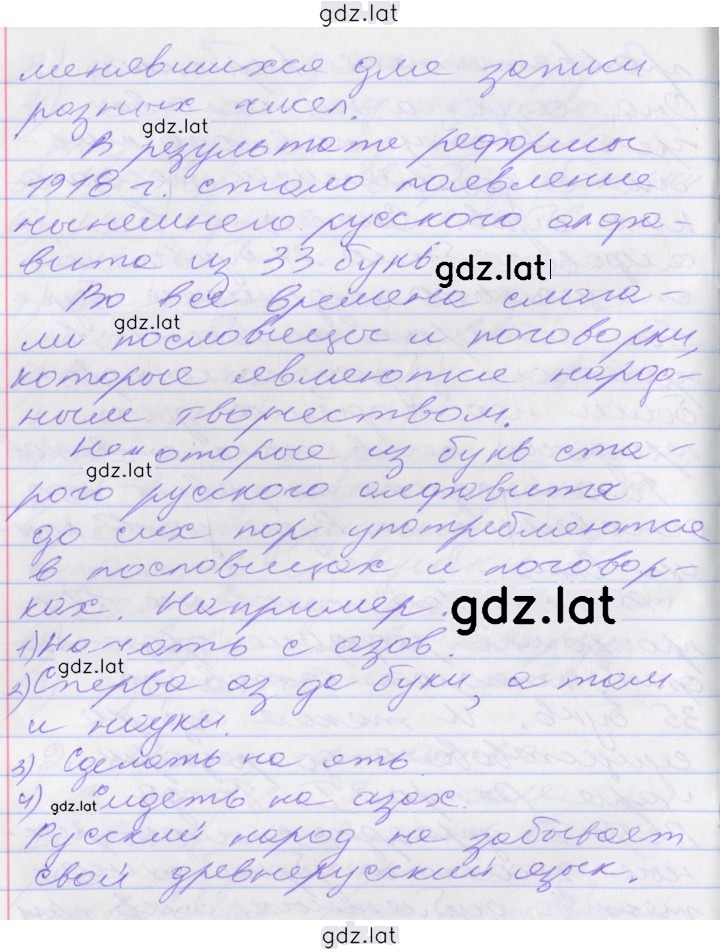 gdz.lat
менявшихся для записи
разных чисел.
gdz.lat
В результате реформы
1918 г. стало появление
нынешнего русского алфа-
вита из 33 букв
gdz.lat
Во все времена слага-
gdz.lat
ли пословицы и поговорки,
которые являются народ-
ным творчеством.
Некоторые из букв ста-
gdz.lat
рого русского алфавита
до сих пор употребляются
в пословицах и поговор-
ках. Например:
gdz.lat
1) Начать с азов.
gdz.lat
2) Сперва аз да буки, а там
и науки.
3) Сделать на ять.
4) Сидеть на азах.
gdz.lat
Русский народ не забывает
свой древнерусский язык.
gdz.lat